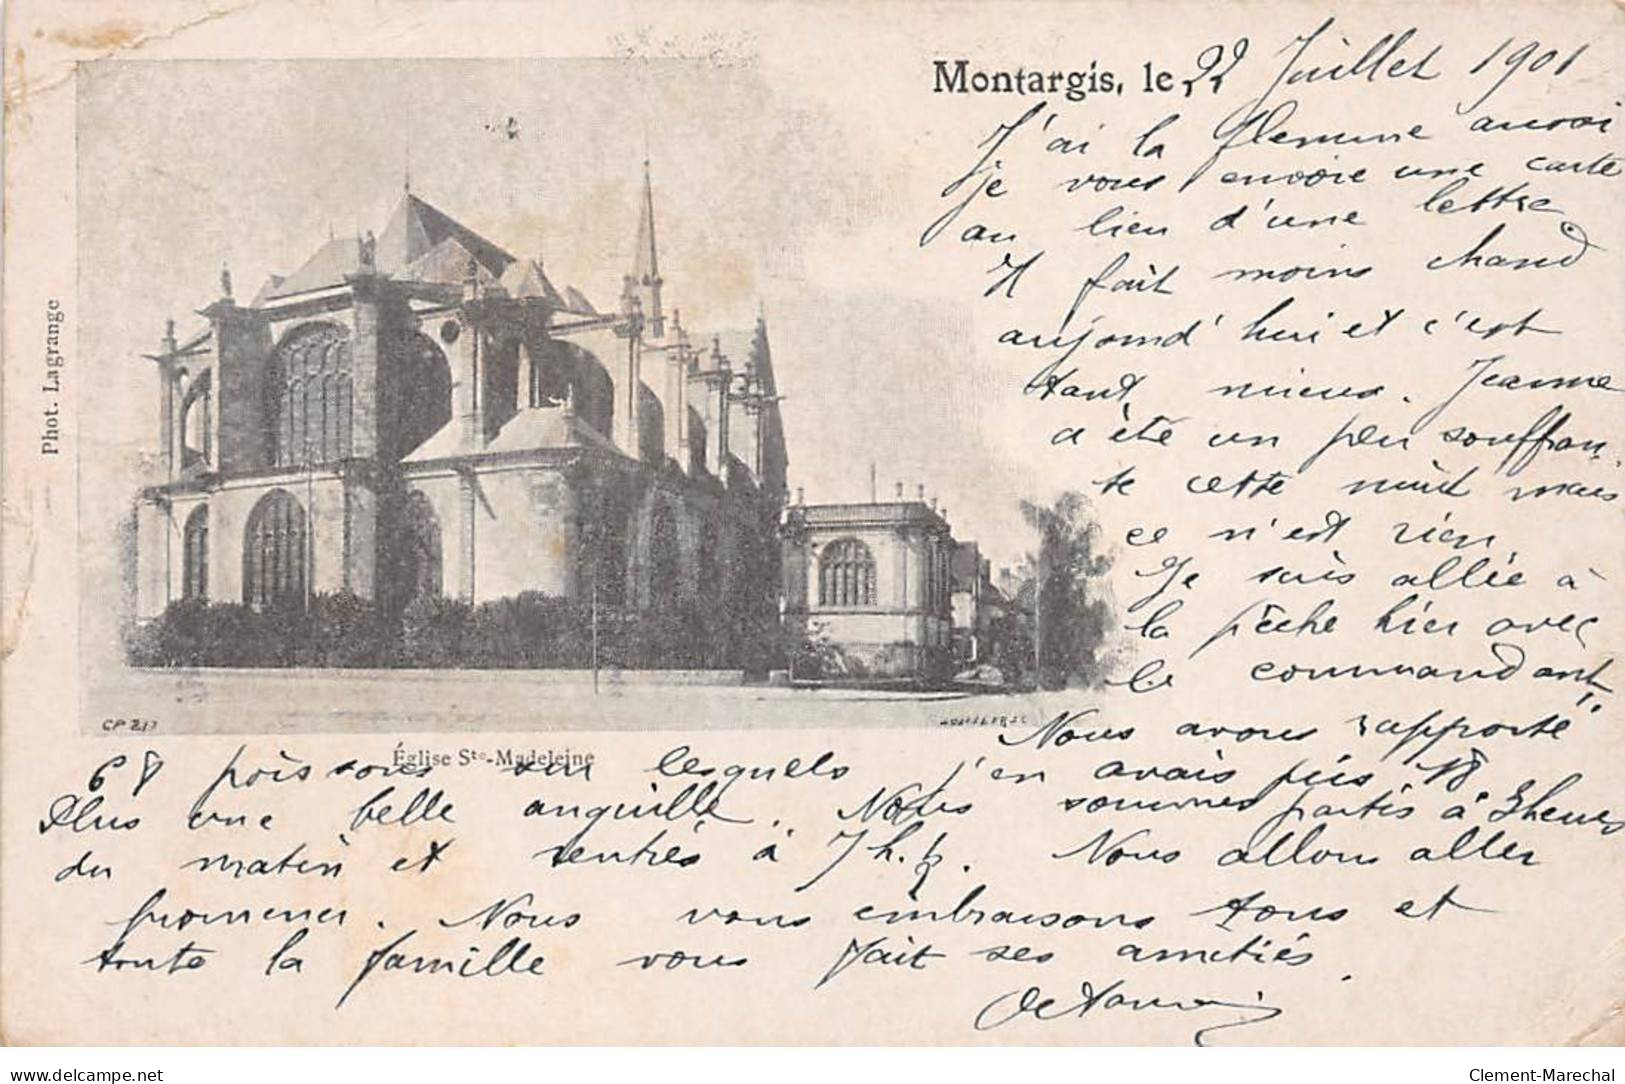 Montargis, le 22 Juillet 1901
J'ai la flemme aussi
je vous envoie une carte
au lieu d'une lettre
Il fait moins chaud
aujourd'hui et c'est
tant mieux. Jeanne
a été un peu souffran
te cette nuit mais
ce n'est rien
Je suis allée à
la pêche hier avec
le commandant.
Nous avons rapporté
68 poissons sur lesquels j'en avais pris 18
Plus une belle anguille. Nous sommes partis à 3 heures
du matin et rentrés à 7 h. ½. Nous allons aller
promener. Nous vous embrassons tous et
toute la famille vous fait ses amitiés.
Phot. Lagrange
CP 217
Église Ste-Madeleine
Clement-Marechal
delcampe.net